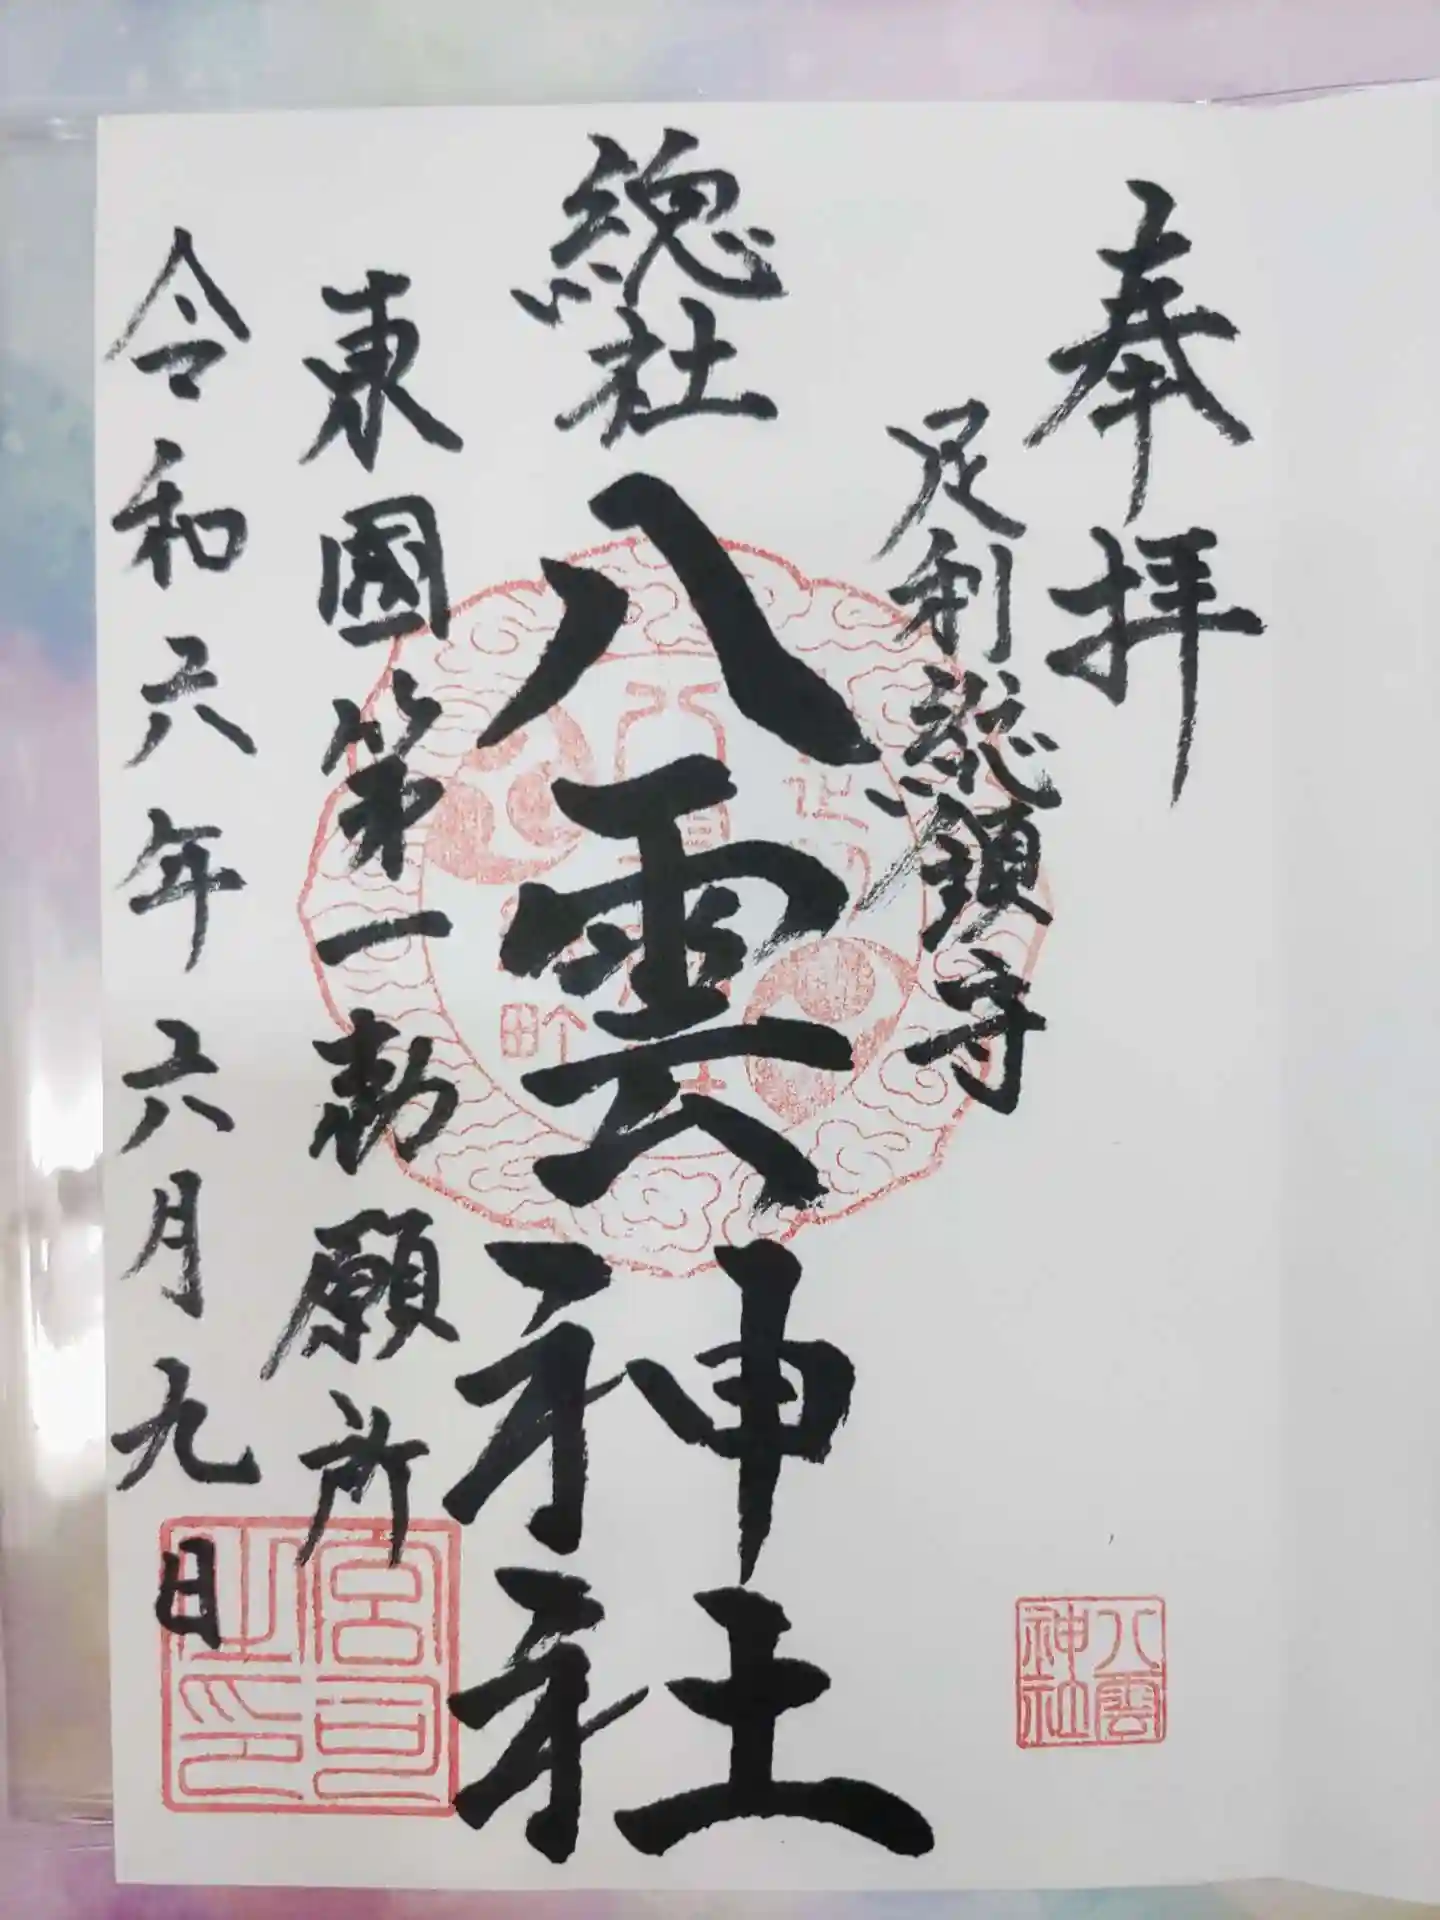 奉拝
足利総鎮守
総社
八雲神社
東國第一勅願所
令和六年六月九日
八雲神社
宮司之印